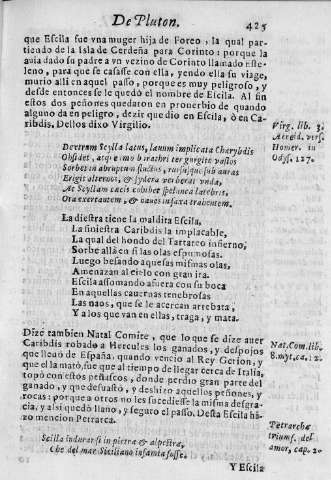 De Pluton. 425
que Escila fue vna muger hija de Forco, la qual par-
tiendo de la Isla de Cerdeña para Corinto: porque la
auia dado su padre a vn vezino de Corinto llamado
leno, para que se casasse con ella, yendo ella su viage,
murio alli en aquel passo, porque es muy peligroso, y
desde entonces se le quedò el nombre de Escila. Al fin
estos dos peñones quedaron en prouerbio de quando
alguno da en peligro, dezir que dio en Escila, ò en Ca-
ribdis. Dellos dixo Virgilio.
Virg. lib. 3.
Aeneid. vers.
Homer. in
Odys. 127.
Dextrum Scylla latus, læuum implicata Charybdis
Obsidet, atque imo barathri ter gurgite vastos
Sorbet in abruptum fluctus, rursusque sub auras
Erigit alternos, & sydera verberat vnda,
At Scyllam cæcis cohibet spelunca latebris,
Ora exertantem, & naues in saxa trahentem.
La diestra tiene la maldita Escila,
La siniestra Caribdis la implacable,
La qual del hondo del Tartareo infierno,
Sorbe allà en si las olas espumosas.
Luego besando aquesas mismas olas,
Amenazan al cielo con gran ira.
Escila assomando afuera con su boca
En aquellas cauernas tenebrosas
Las naos, que se le acercan arrebata,
Y a los que van en ellas, traga, y mata.
Dize tambien Natal Comite, que lo que se dize auer
Caribdis robado a Hercules los ganados, y despojos
que lleuò de España, quando vencio al Rey Gerion, y
que el la matò, fue que al tiempo de llegar cerca de Italia,
topò con estos peñascos, donde perdio gran parte del
ganado, y que desgastò, y deshizo aquellos peñones, y
rocas: porque a otros no les sucediesse la misma desgra-
cia, y alsi quedò llano, y seguro el passo. Desta Escila hà-
zo mencion Petrarca.
Nat. Com. lib.
8. myt, ca. 12.
Petrarcha
triumf. del
amor, cap. 2.
Scilla indurarsi in pietra & alpestra,
Che del mar Siciliano infamia fosse.
Y Escila